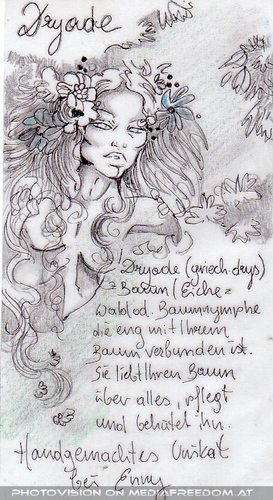 Dryade
Dryade (griech. drys)
= Baum / Eiche =
Waldod. Baumnymphe
die eng mit Ihrem
Baum verbunden ist.
Sie liebt Ihren Baum
über alles, pflegt
und behütet ihn.
Handgemachtes Unikat
bei Enny
PHOTOVISION ON MEDIAFREEDOM.AT